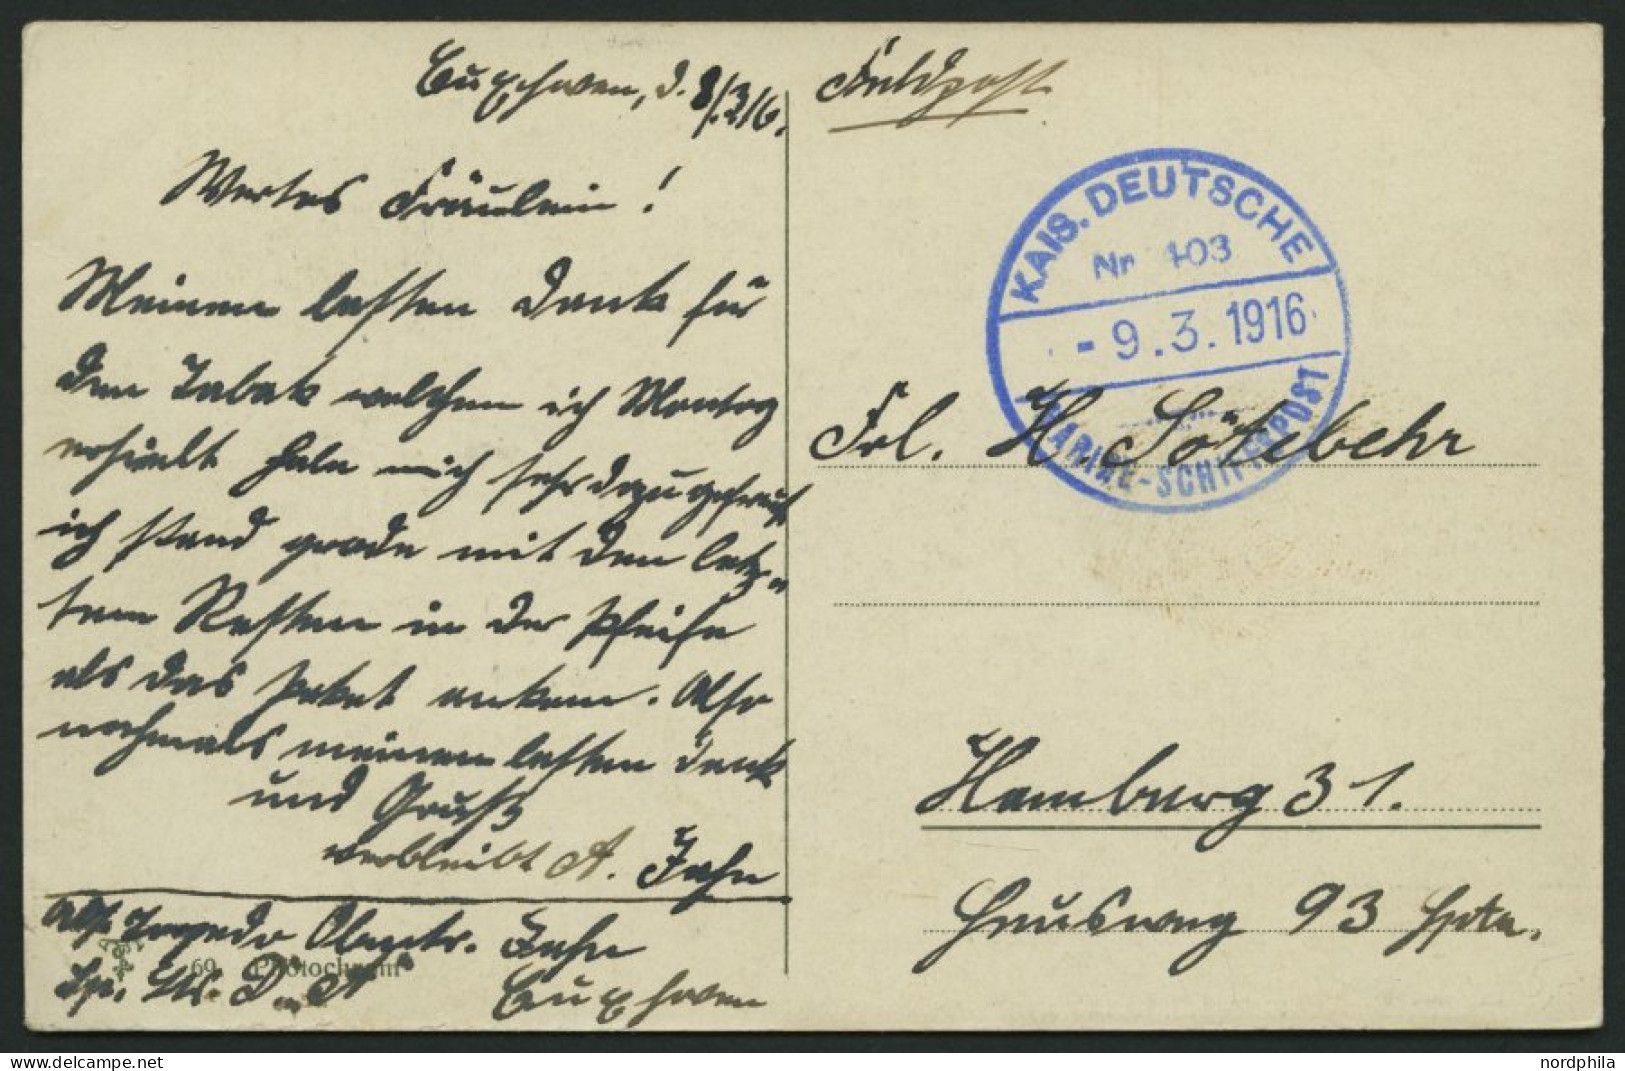 Cuxhaven, d. 8/.3/16.
Wertes Fräulein!
Meinen besten Dank für
den Tabak welchen ich Montag
erhielt habe mich sehr dazu gefreut
ich stand grade mit den letz-
ten Resten in der Pfeife
als das Paket ankam. Also
nochmals meinen besten Dank
und Gruß
verbleibt A. Jahn
Abs. Torpedo Jahn
Cuxhaven
69 Photochromie
Feldpost
KAIS. DEUTSCHE
Nr 403
- 9.3.1916
MARINE-SCHIFFSPOST
Frl. H. Sötebehr
Hamburg 31.
Heusweg 93 Hptr.
nordphila